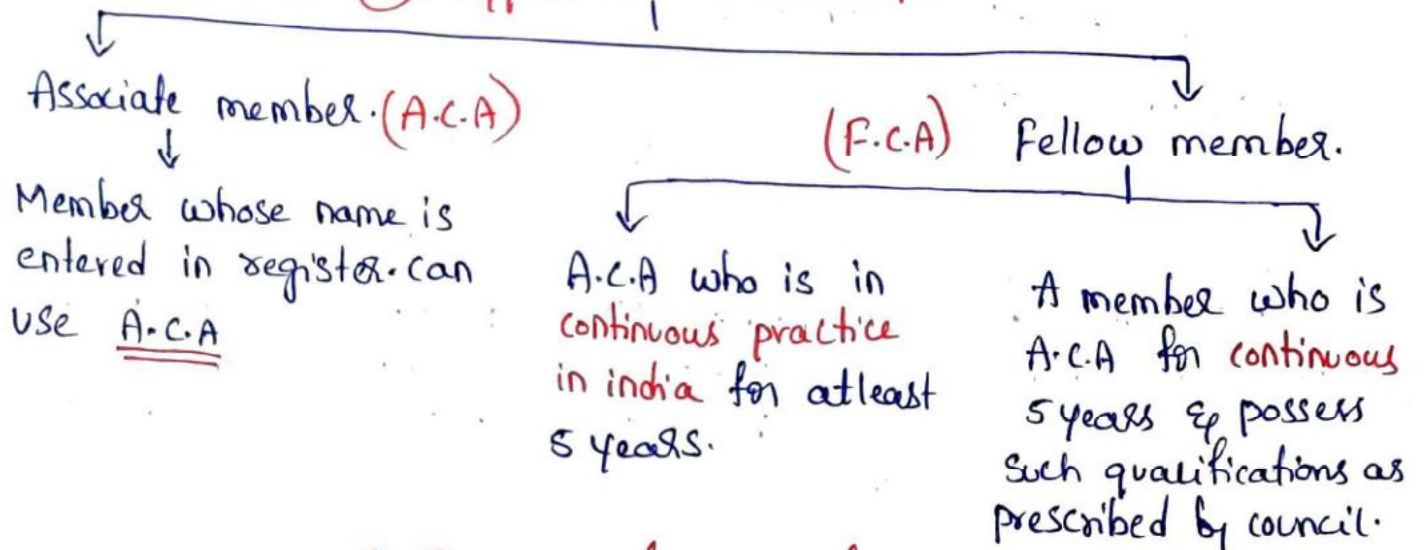 Associate member. (A.C.A)
(F.C.A) Fellow member.
Member whose name is
entered in register. can
use A.C.A
A.C.A who is in
continuous practice
in india for atleast
5 years.
A member who is
A.C.A for continuous
5 years & possess
such qualifications as
prescribed by council.